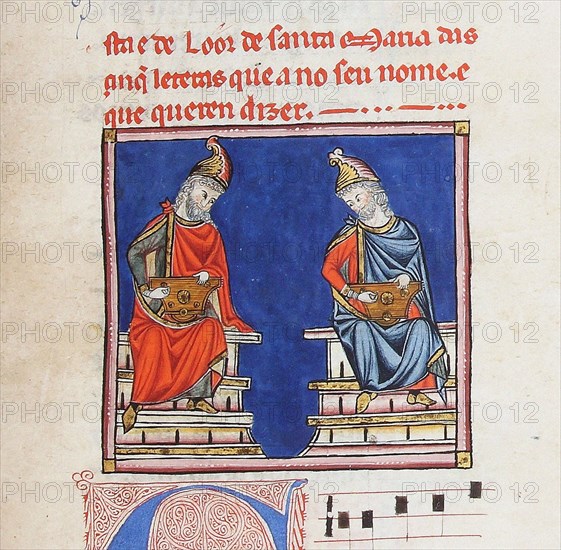 Esta e de Loor de santa Maria das
çinq̃ leteras que a no seu nome. e
que queren dizer.
PHOTO 12